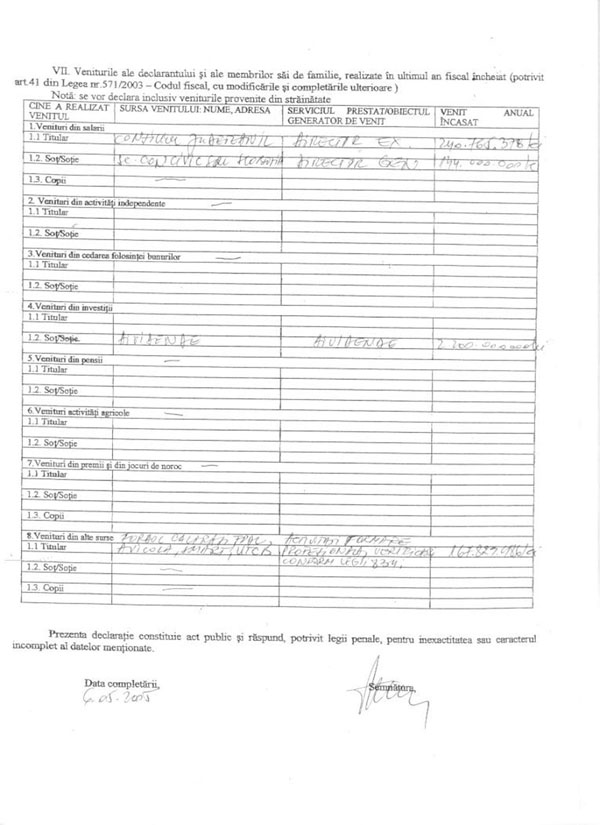 VII. Veniturile ale declarantului și ale membrilor săi de familie, realizate în ultimul an fiscal încheiat (potrivit
art.41 din Legea nr.571/2003 – Codul fiscal, cu modificările și completările ulterioare )
Notă: se vor declara inclusiv veniturile provenite din străinătate
CINE A REALIZAT VENITUL SURSA VENITULUI: NUME, ADRESA SERVICIUL PRESTAT/OBIECTUL GENERATOR DE VENIT VENIT ANUAL ÎNCASAT
1.Venituri din salarii
1.1 Titular CONSILIUL JUDETEAN DIRECTOR EX. 240.765.378 lei
1.2. Soț/Soție SC DIRECTOR GEN. 194.000.000 lei
1.3. Copii —
2. Venituri din activități independente —
1.1 Titular
1.2. Soț/Soție
3.Venituri din cedarea folosinței bunurilor —
1.1 Titular
1.2. Soț/Soție
4.Venituri din investiții
1.1 Titular
1.2. Soț/Soție DIVIDENDE DIVIDENDE 2.200.000.000 lei
5.Venituri din pensii —
1.1 Titular
1.2. Soț/Soție
6.Venituri activități agricole —
1.1 Titular
1.2. Soț/Soție
7.Venituri din premii și din jocuri de noroc —
1.1 Titular
1.2. Soț/Soție
1.3. Copii
8.Venituri din alte surse
1.1 Titular AVICOLA, CONFORM LEGII
1.2. Soț/Soție —
1.3. Copii —
Prezenta declarație constituie act public și răspund, potrivit legii penale, pentru inexactitatea sau caracterul
incomplet al datelor menționate.
Data completării, Semnătura,
05.2005